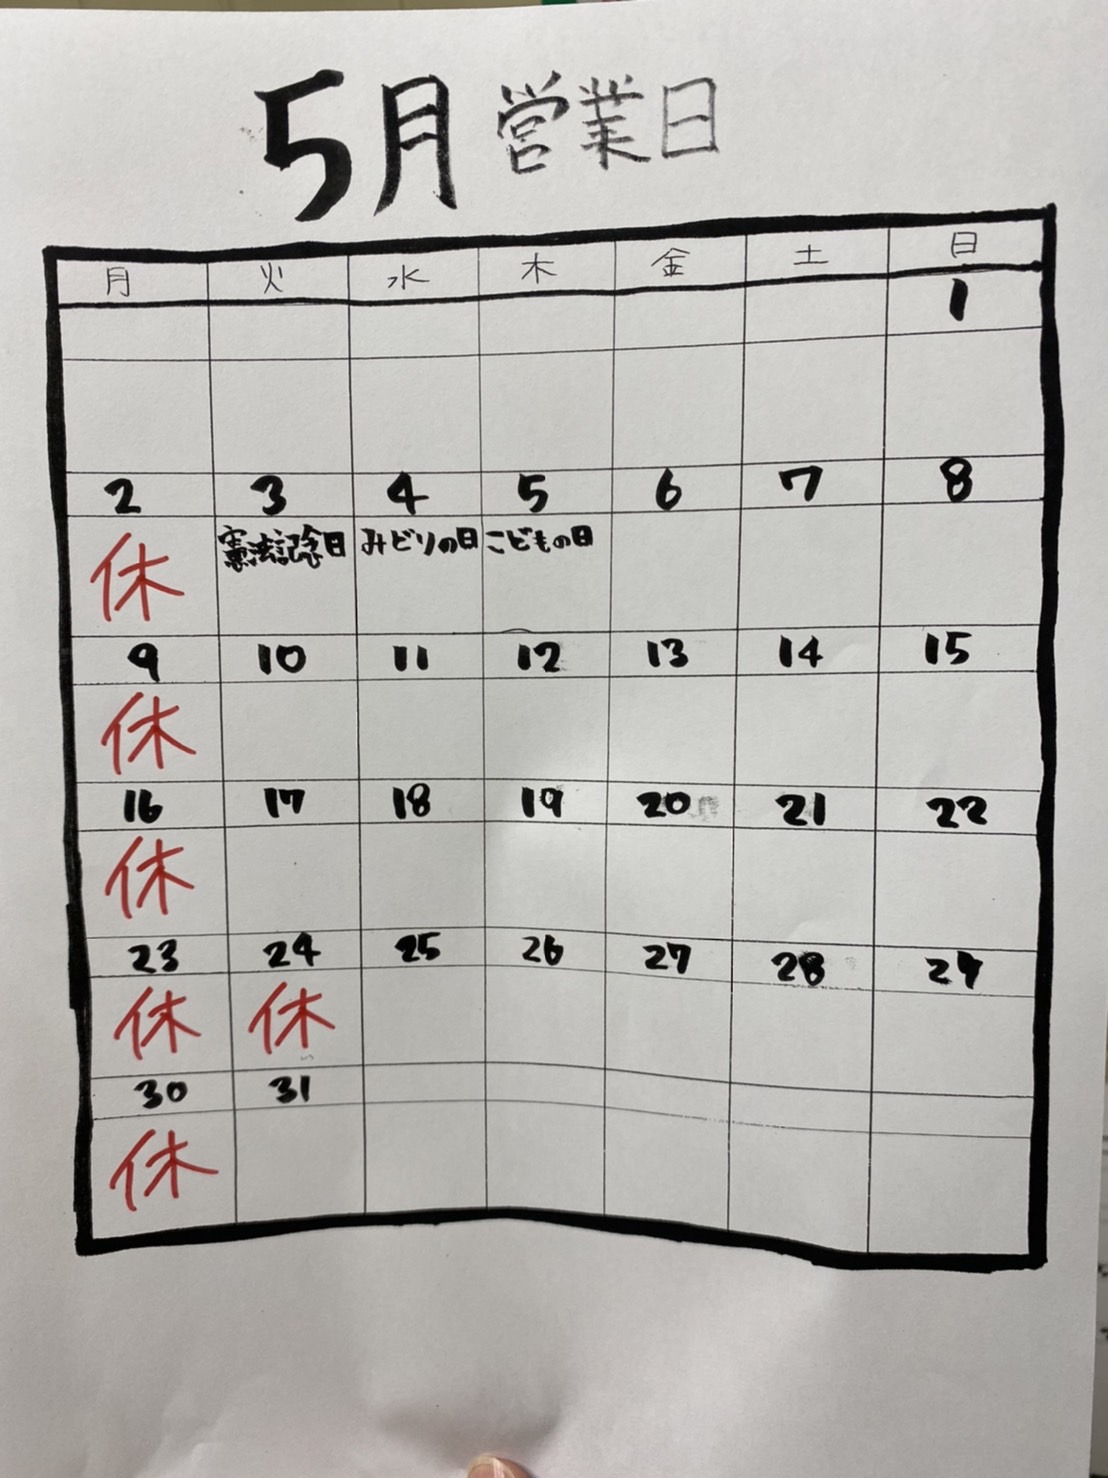 5月 営業日
月 火 水 木 金 土 日
1
2 3 4 5 6 7 8
休 憲法記念日 みどりの日 こどもの日
9 10 11 12 13 14 15
休
16 17 18 19 20 21 22
休
23 24 25 26 27 28 29
休 休
30 31
休